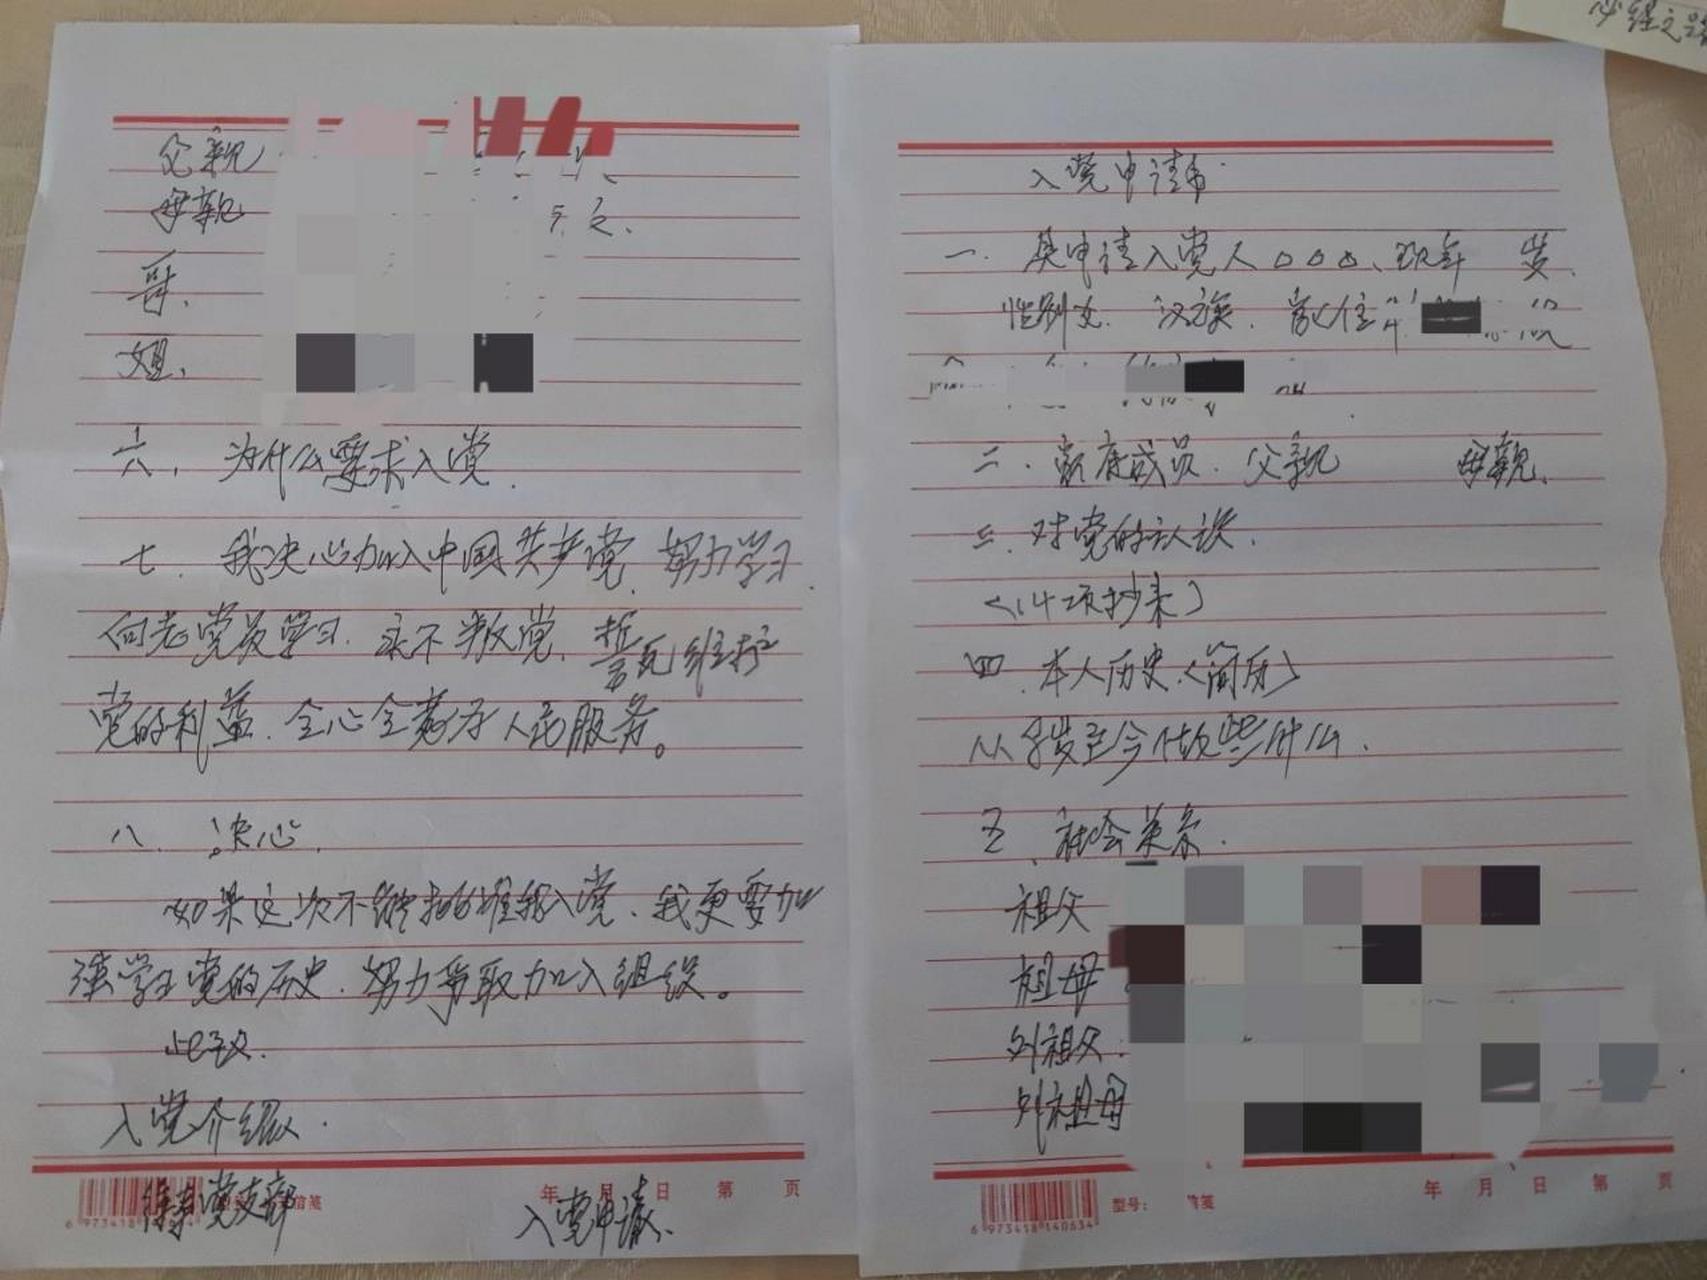 入党申请书
一. 其申请入党人△△△、现年 岁.
性别女. 汉族. 家住
二. 家庭成员. 父亲 母亲、
三. 对党的认识.
<14项抄录>
四. 本人历史.<简历>
从8岁至今做些什么.
五、社会关系.
祖父
祖母
外祖父.
外祖母
型号: 信笺
年 月 日 第 页
6 973418 140634
父亲
母亲
哥、
姐、
六. 为什么要求入党.
七. 我决心加入中国共产党. 努力学习.
向老党员学习. 永不叛党. 誓死维护
党的利益. 全心全意为人民服务。
八. 决心.
如果这次不能批准我入党、我更要加
强学习党的历史. 努力争取加入组织。
此致.
入党介绍人.
党支部
入党申请人.
信笺
年 月 日 第 页
6 973418
之